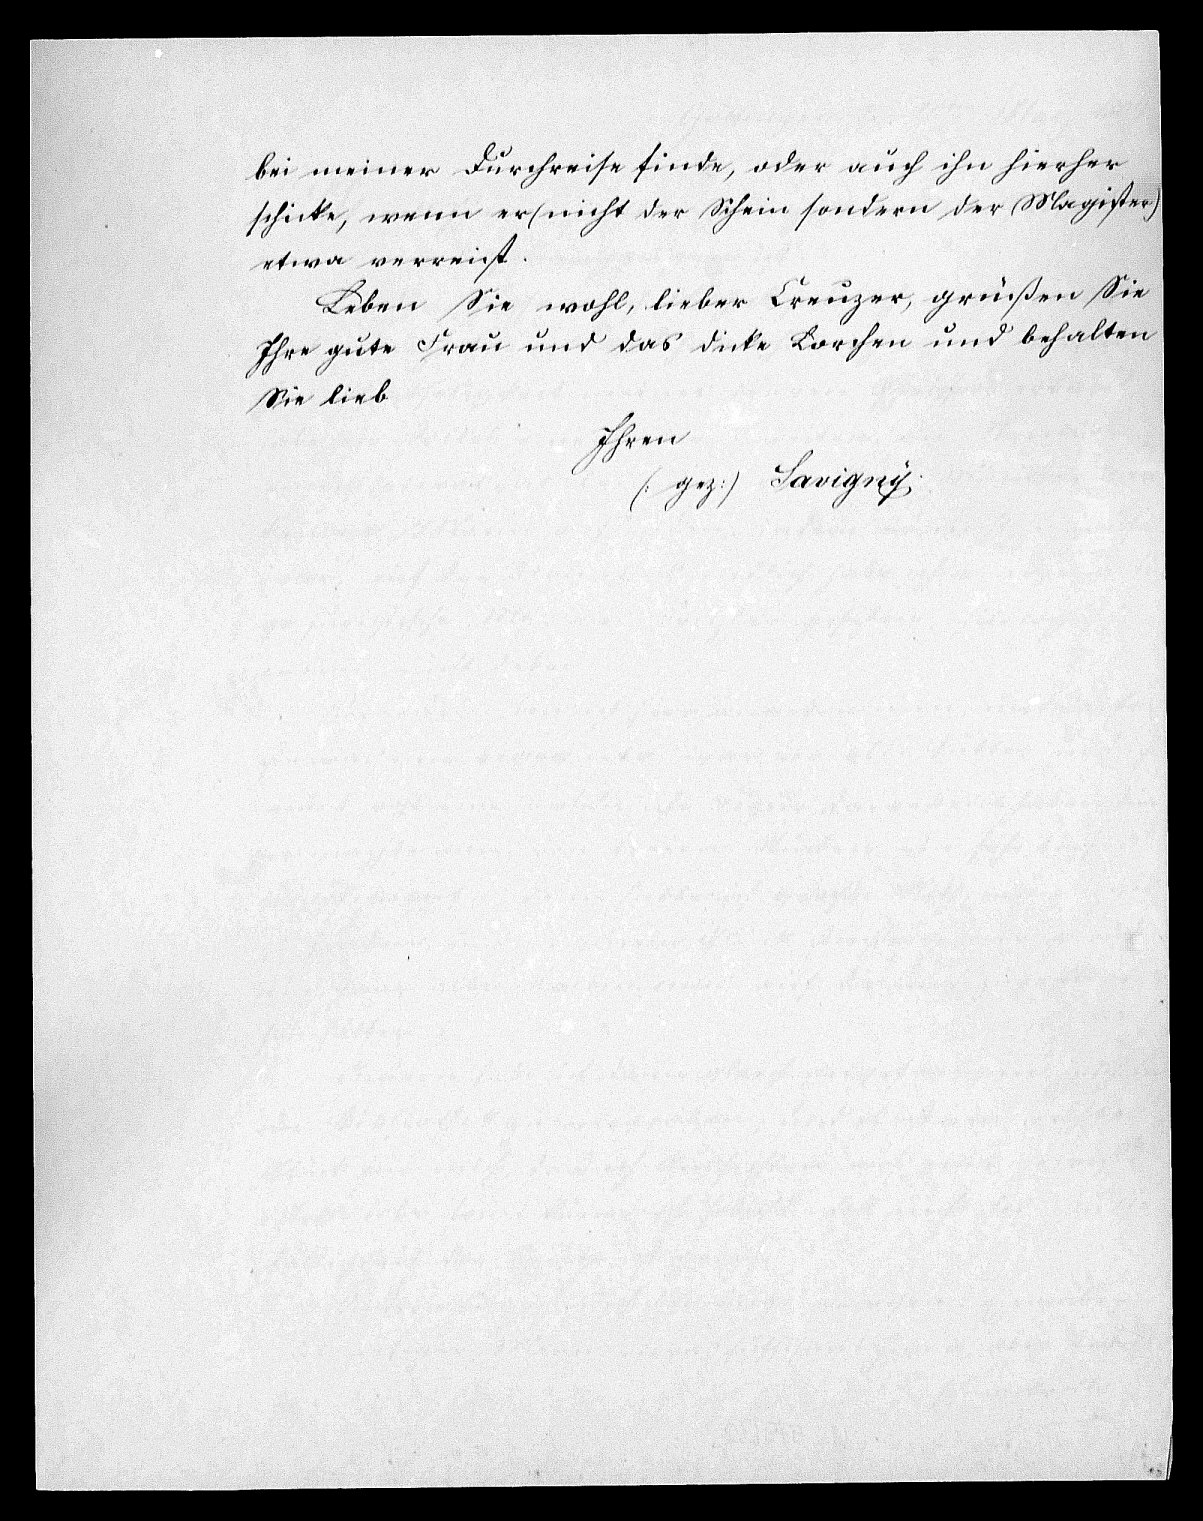 bei meiner Durchreise finde, oder auch ihn hierher
schicke, wenn er (nicht der Schein sondern der Magister)
etwa verreist.
Leben Sie wohl, lieber Creuzer, grüßen Sie
Ihre gute Frau und das dicke Lorchen und behalten
Sie lieb
Ihren
(: gez:) Savigny.